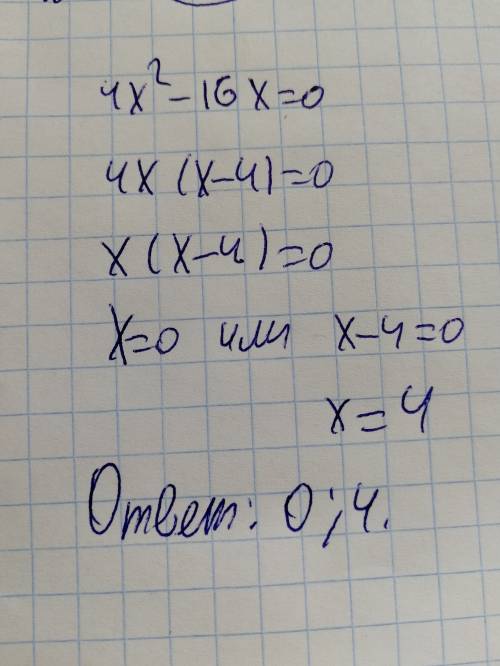 4x² - 16x = 0
4x (x - 4) = 0
x (x - 4) = 0
x = 0 или x - 4 = 0
x = 4
Ответ: 0; 4.